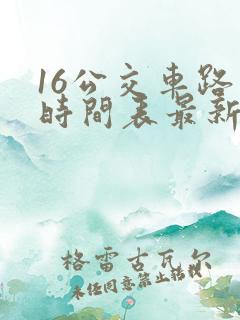 16公交車路
時間表最新
格雷古瓦尔
未经同意禁止转载